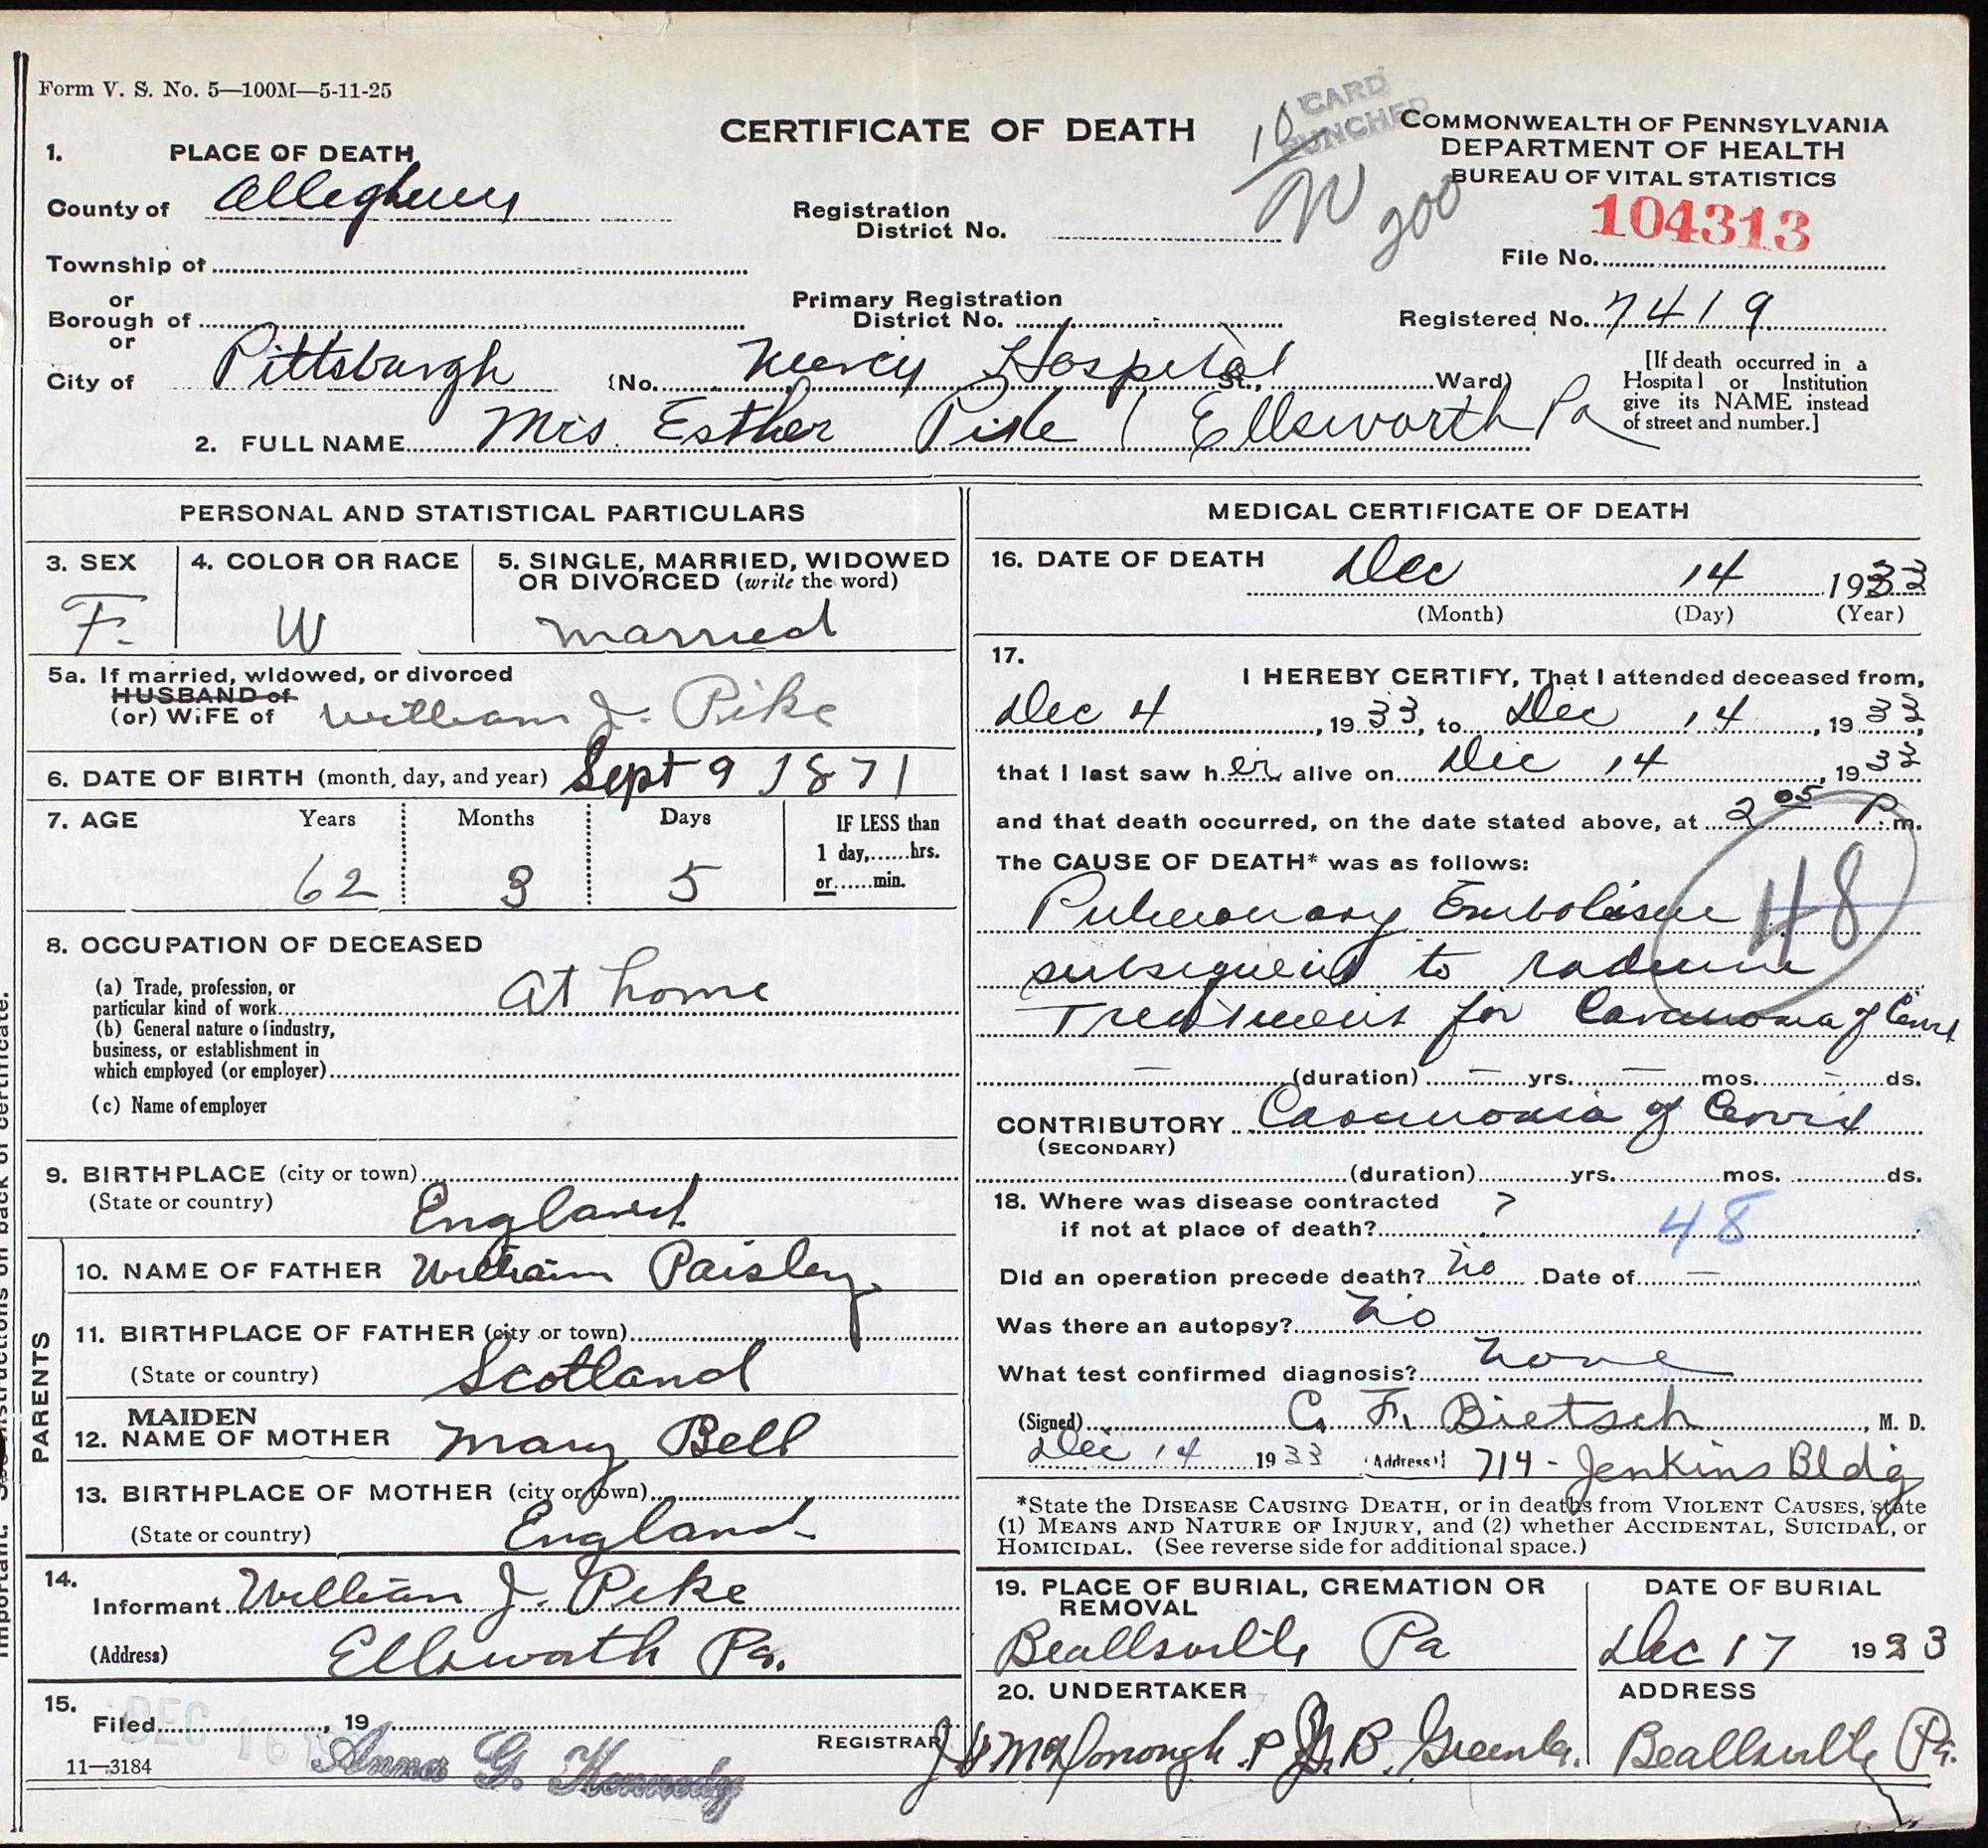 Form V. S. No. 5—100M—5-11-25
CERTIFICATE OF DEATH
CARD
PUNCHED
10
W 200
COMMONWEALTH OF PENNSYLVANIA
DEPARTMENT OF HEALTH
BUREAU OF VITAL STATISTICS
104313
File No.
1. PLACE OF DEATH
County of Allegheny
Registration
District No.
Township of
or
Borough of
or
Primary Registration
District No.
Registered No. 7419
City of Pittsburgh (No. Mercy Hospital St., Ward)
[If death occurred in a
Hospital or Institution
give its NAME instead
of street and number.]
2. FULL NAME Mrs. Esther Pike ( Ellsworth Pa
PERSONAL AND STATISTICAL PARTICULARS
3. SEX
F.
4. COLOR OR RACE
W
5. SINGLE, MARRIED, WIDOWED
OR DIVORCED (write the word)
married
5a. If married, widowed, or divorced
HUSBAND of
(or) WIFE of William J. Pike
6. DATE OF BIRTH (month, day, and year) Sept 9 1871
7. AGE Years Months Days
62 3 5
IF LESS than
1 day,......hrs.
or......min.
8. OCCUPATION OF DECEASED
(a) Trade, profession, or
particular kind of work at home
(b) General nature of industry,
business, or establishment in
which employed (or employer)
(c) Name of employer
9. BIRTHPLACE (city or town)
(State or country) England
PARENTS
10. NAME OF FATHER William Paisley
11. BIRTHPLACE OF FATHER (city or town)
(State or country) Scotland
MAIDEN
12. NAME OF MOTHER Mary Bell
13. BIRTHPLACE OF MOTHER (city or town)
(State or country) England
14.
Informant William J. Pike
(Address) Ellsworth Pa.
15.
Filed DEC 16 , 19
Anna G. Kennedy
REGISTRAR
11—3184
MEDICAL CERTIFICATE OF DEATH
16. DATE OF DEATH Dec 14 1933
(Month) (Day) (Year)
17.
I HEREBY CERTIFY, That I attended deceased from,
Dec 4, 1933, to Dec 14, 1933,
that I last saw her alive on Dec 14, 1933
and that death occurred, on the date stated above, at 2 05 P.m.
The CAUSE OF DEATH* was as follows:
Pulmonary Embolism
48
subsequent to radium
Treatment for Carcinoma of Cervix
— (duration) — yrs. — mos. — ds.
CONTRIBUTORY Carcinoma of Cervix
(SECONDARY)
(duration) yrs. mos. ds.
18. Where was disease contracted
if not at place of death? ?
48
Did an operation precede death? no Date of —
Was there an autopsy? no
What test confirmed diagnosis? none
(Signed) C. F. Bietsch, M. D.
Dec 14 1933 (Address) 714 - Jenkins Bldg
*State the DISEASE CAUSING DEATH, or in deaths from VIOLENT CAUSES, state
(1) MEANS AND NATURE OF INJURY, and (2) whether ACCIDENTAL, SUICIDAL, or
HOMICIDAL. (See reverse side for additional space.)
19. PLACE OF BURIAL, CREMATION OR
REMOVAL
Beallsville Pa
DATE OF BURIAL
Dec 17 1933
20. UNDERTAKER
McDonough
ADDRESS
Beallsville Pa.
important. See instructions on back of certificate.